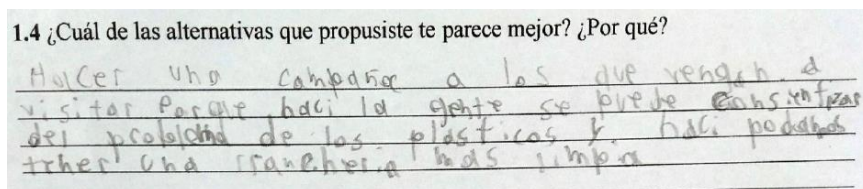 1.4 ¿Cuál de las alternativas que propusiste te parece mejor? ¿Por qué?
Hacer una campaña a los que vengan a
visitar Porque haci la gente se puede consientizar
del problema de los plásticos y haci podamos
trher una rrancheria mas limpia